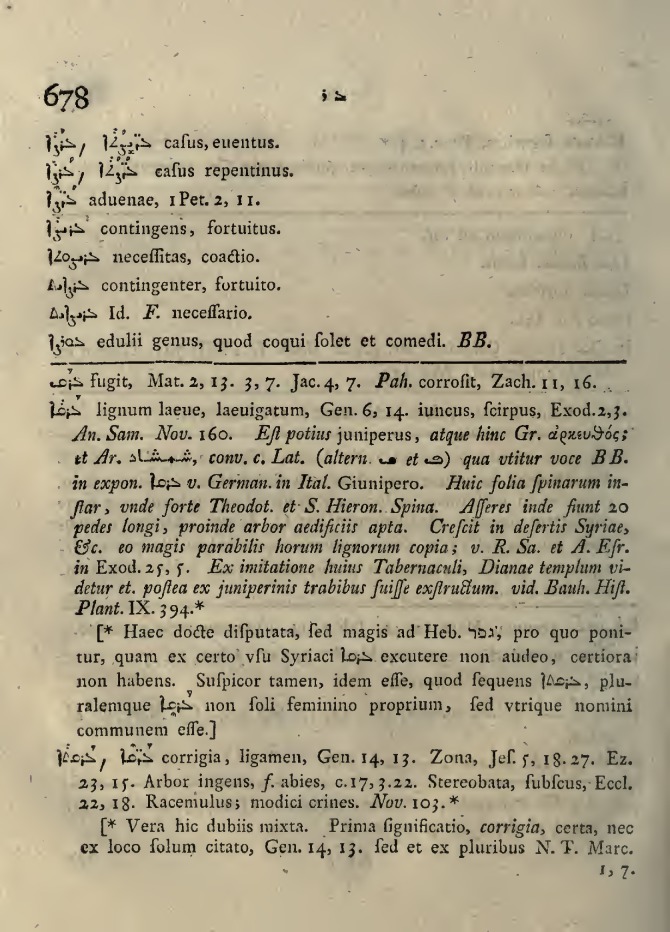 678 ܥ ܪ
casus, euentus.
casus repentinus.
aduenae, 1 Pet. 2, 11.
contingens, fortuitus.
necessitas, coactio.
contingenter, fortuito.
Id. F. necessario.
edulii genus, quod coqui solet et comedi. BB.
ܥܪܩ fugit, Mat. 2, 13. 3, 7. Jac. 4, 7. Pah. corrosit, Zach. 11, 16.
ܥܪܩܐ lignum laeue, laeuigatum, Gen. 6, 14. iuncus, scirpus, Exod. 2, 3.
An. Sam. Nov. 160. Est potius juniperus, atque hinc Gr. ἀρκευθός;
et Ar. conv. c. Lat. (altern. ܩ et ܦ) qua vtitur voce BB.
in expon. ܥܪܩܐ v. German. in Ital. Giunipero. Huic folia spinarum in-
star, vnde forte Theodot. et S. Hieron. Spina. Asseres inde fiunt 20
pedes longi, proinde arbor aedificiis apta. Crescit in desertis Syriae,
&c. eo magis parabilis horum lignorum copia; v. R. Sa. et A. Esr.
in Exod. 25, 5. Ex imitatione huius Tabernaculi, Dianae templum vi-
detur et. postea ex juniperinis trabibus fuisse exstructum. vid. Bauh. Hist.
Plant. IX. 394.*
[* Haec docte disputata, sed magis ad Heb. גפר, pro quo poni-
tur, quam ex certo vsu Syriaci ܥܪܩܐ excutere non audeo, certiora
non habens. Suspicor tamen, idem esse, quod sequens ܥܪܩܬܐ, plu-
ralemque ܥܪܩܐ non soli feminino proprium, sed vtrique nomini
communem esse.]
ܥܪܩܬܐ, ܥܪ̈ܩܐ corrigia, ligamen, Gen. 14, 13. Zona, Jes. 5, 18. 27. Ez.
23, 15. Arbor ingens, f. abies, c. 17, 3. 22. Stereobata, subscus, Eccl.
22, 18. Racemulus; modici crines. Nov. 103.*
[* Vera hic dubiis mixta. Prima significatio, corrigia, certa, nec
ex loco solum citato, Gen. 14, 13. sed et ex pluribus N. T. Marc.
1, 7.